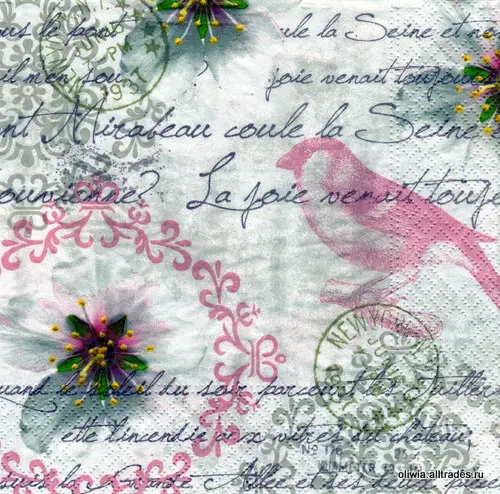 us le pont
ule la Seine et no
il m'en sou
?
joie venait toujou
nt Mirabeau coule la Seine
ouvienne? La joie venait toujo
NEW YORK
quand le soleil du soir parcourt les Tuiller
et l'incendie aux vitres du château,
No 76
suis la Grande Allée et ses de
oliwia.alltrades.ru